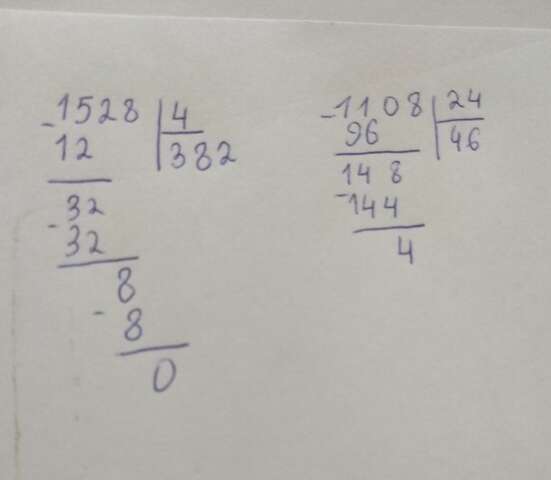 -1528 | 4
12 | 382
32
-32
8
-8
0
-1108 | 24
96 | 46
148
-144
4